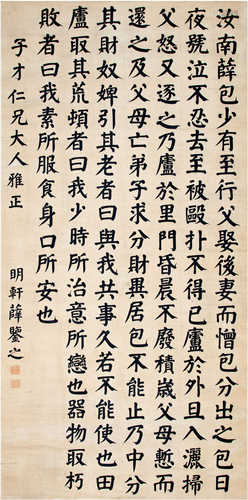 汝南薛包少有至行父娶後妻而憎包分出之包日
夜號泣不忍去至被毆扑不得已廬於外旦入灑掃
父怒又逐之乃廬於里門昏晨不廢積歲父母慙而
還之及父母亡弟子求分財異居包不能止乃中分
其財奴婢引其老者曰與我共事久若不能使也田
廬取其荒頓者曰我少時所治意所戀也器物取朽
敗者曰我素所服食身口所安也
子才仁兄大人雅正
明軒薛鑒之